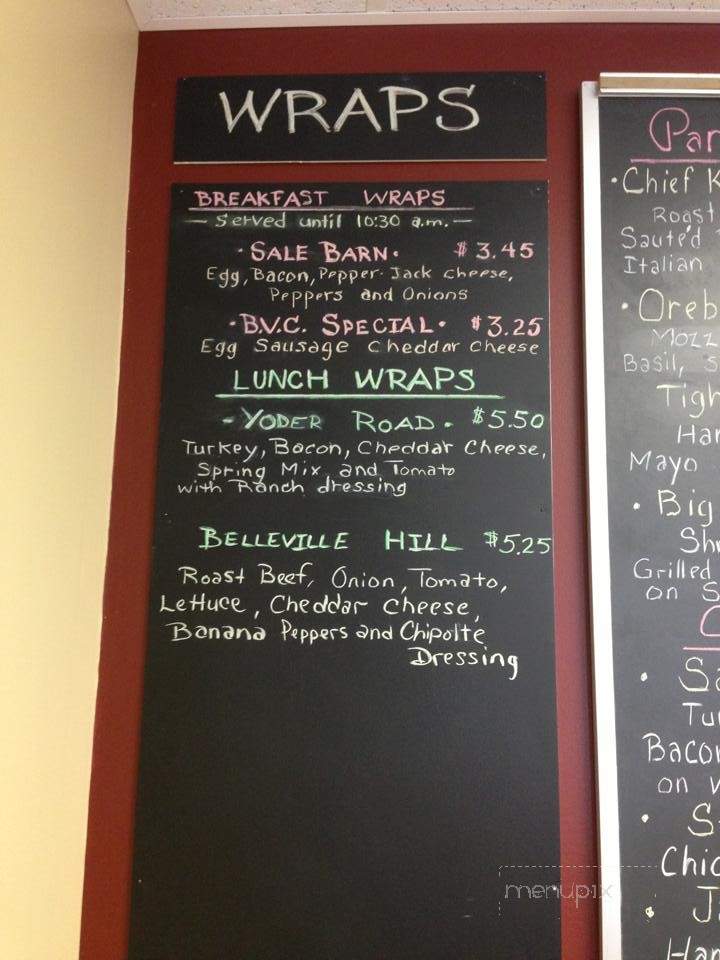 WRAPS
BREAKFAST WRAPS
- Served until 10:30 a.m. -
· SALE BARN · $3.45
Egg, Bacon, Pepper Jack cheese,
Peppers and Onions
· B.V.C. SPECIAL · $3.25
Egg Sausage Cheddar Cheese
LUNCH WRAPS
- YODER ROAD . $5.50
Turkey, Bacon, Cheddar Cheese,
Spring Mix, and Tomato
with Ranch dressing
BELLEVILLE HILL $5.25
Roast Beef, Onion, Tomato,
Lettuce, Cheddar cheese,
Banana Peppers and Chipolte
Dressing
· Chief
Roast
Sauté'd
Italian
Basil,
Mayo
· Big
Grilled
on
on
menupix